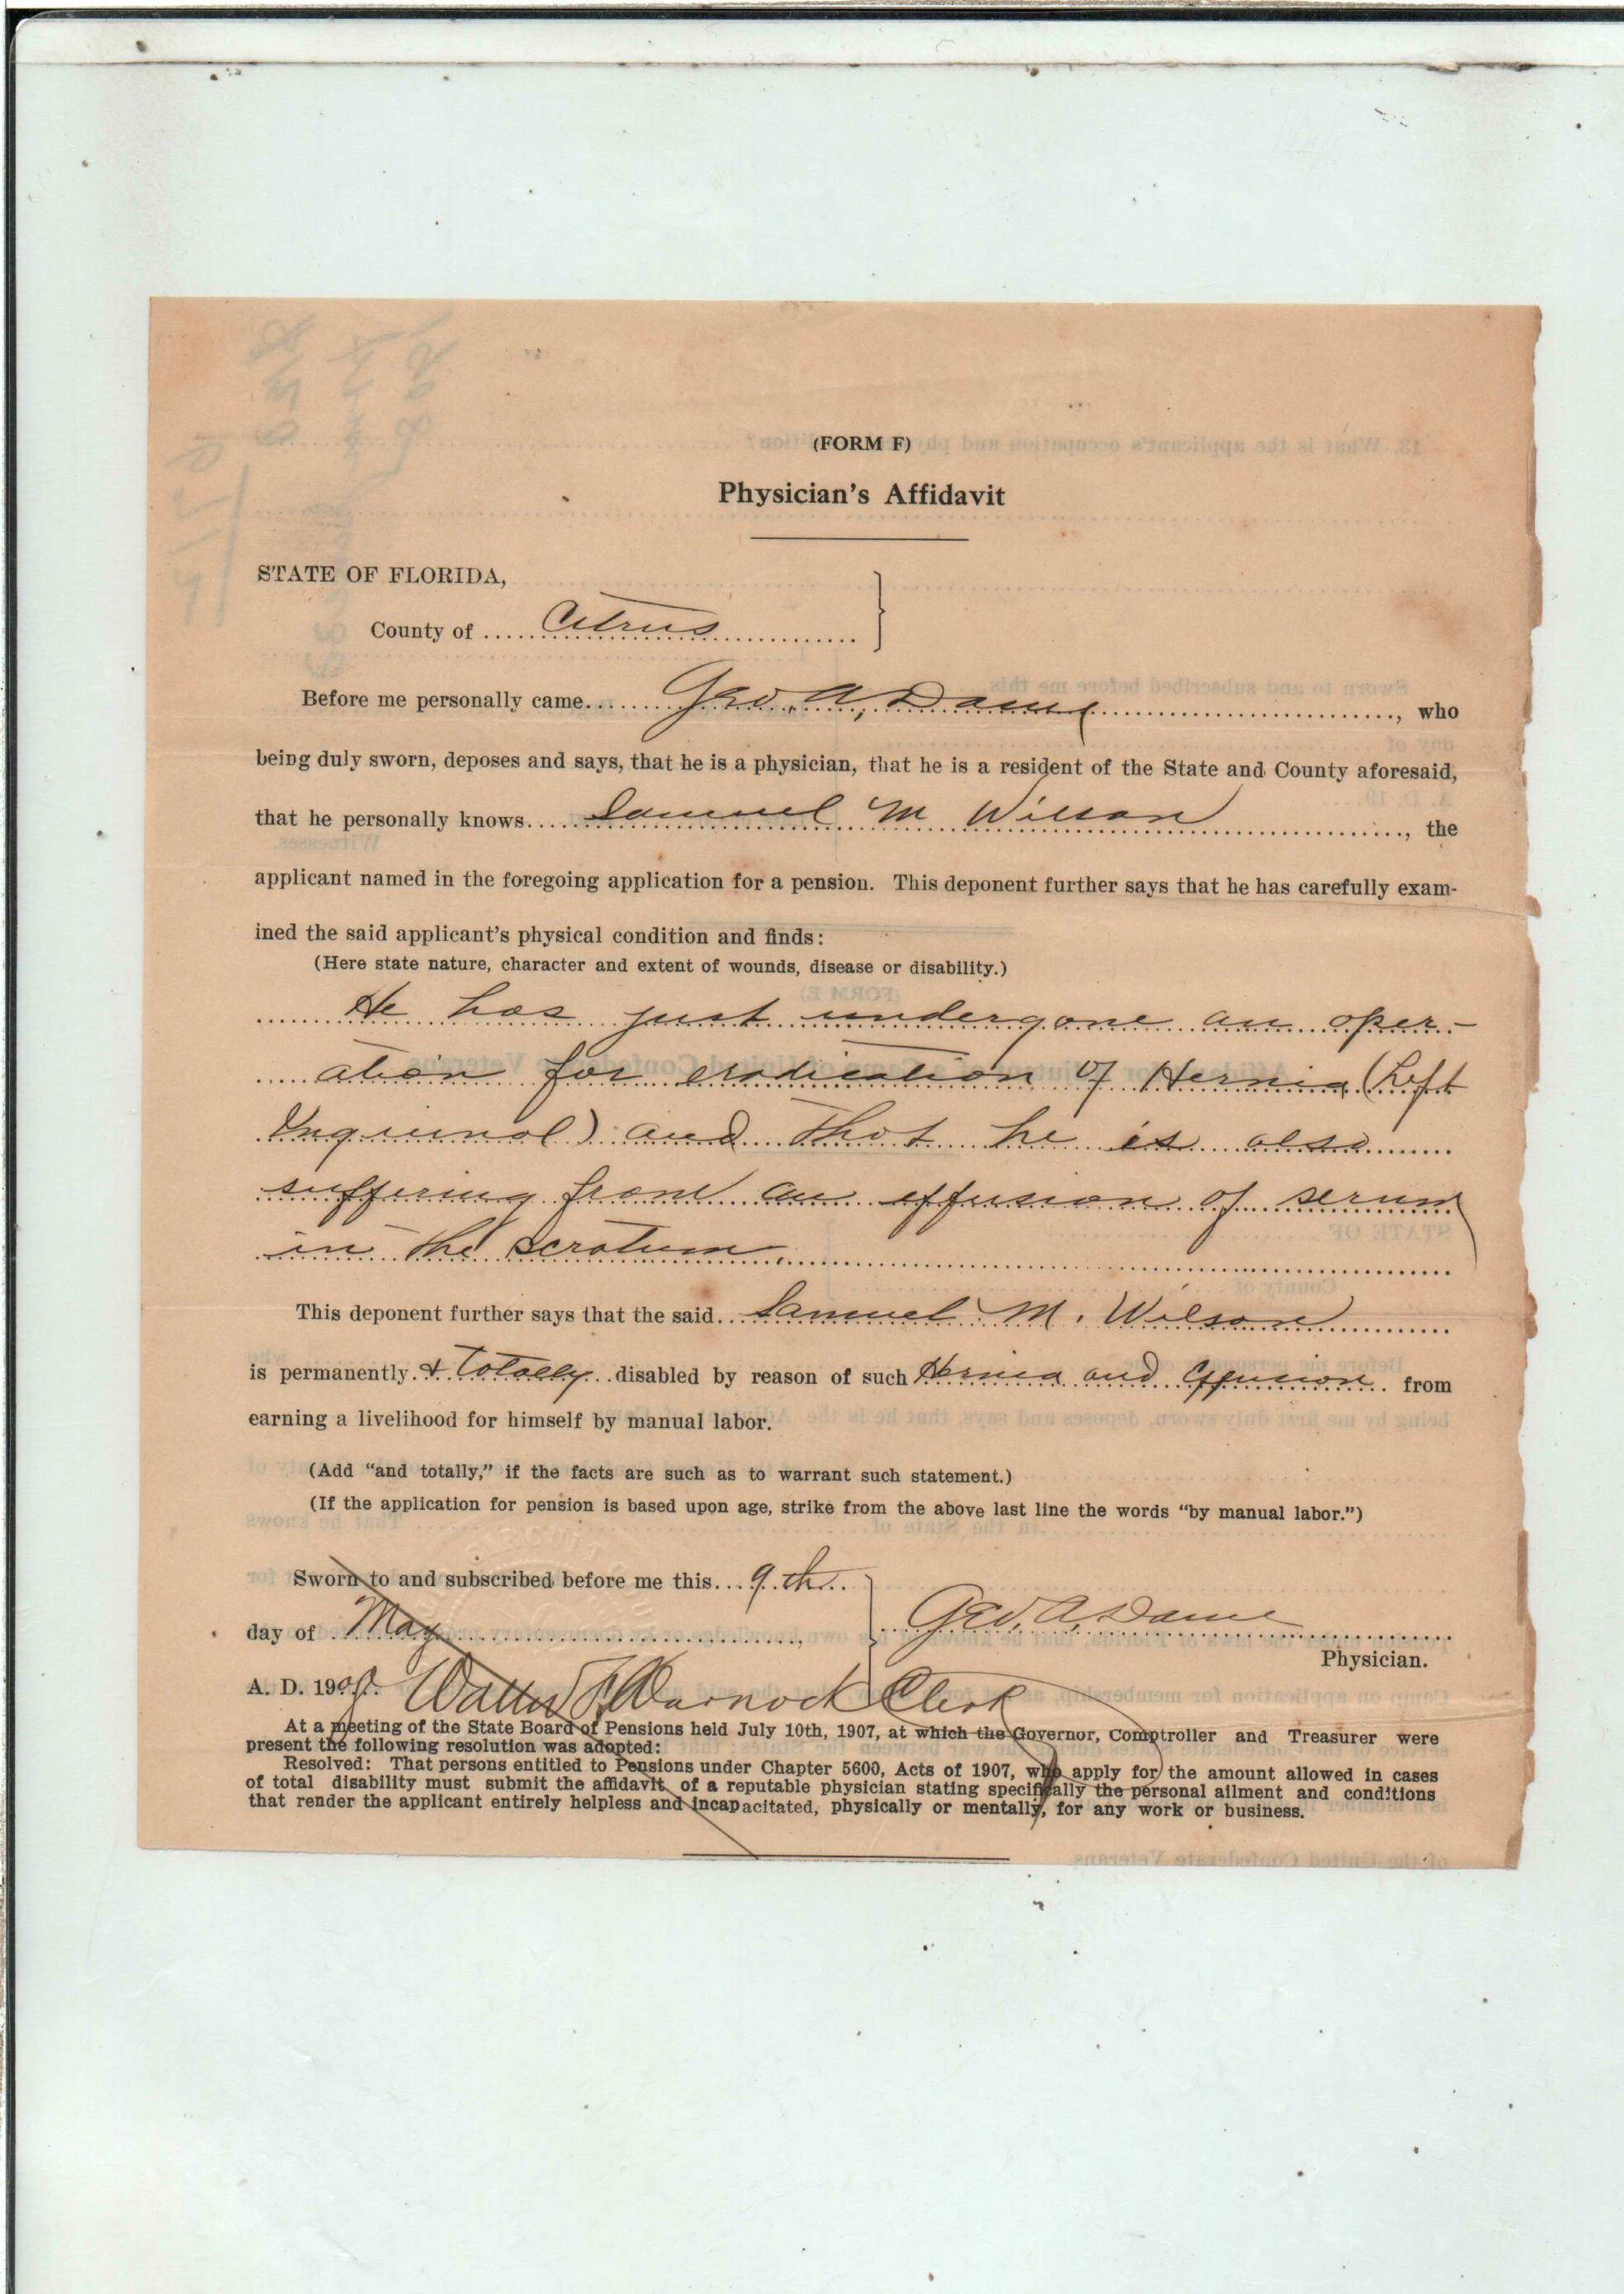 (FORM F)
Physician's Affidavit
STATE OF FLORIDA,
County of Citrus
Before me personally came Geo. A. Dame, who
being duly sworn, deposes and says, that he is a physician, that he is a resident of the State and County aforesaid,
that he personally knows Samuel M Wilson, the
applicant named in the foregoing application for a pension. This deponent further says that he has carefully exam-
ined the said applicant's physical condition and finds:
(Here state nature, character and extent of wounds, disease or disability.)
He has just undergone an oper-
ation for eradication of Hernia (Left
Inguinal) and that he is also
suffering from an effusion of serum
in the scrotum.
This deponent further says that the said Samuel M. Wilson
is permanently & totally disabled by reason of such Hernia and Effusion from
earning a livelihood for himself by manual labor.
(Add "and totally," if the facts are such as to warrant such statement.)
(If the application for pension is based upon age, strike from the above last line the words "by manual labor.")
Sworn to and subscribed before me this 9th
day of May,
Geo. A. Dame
Physician.
A. D. 190
Walter F Warnock Clerk
At a meeting of the State Board of Pensions held July 10th, 1907, at which the Governor, Comptroller and Treasurer were
present the following resolution was adopted:
Resolved: That persons entitled to Pensions under Chapter 5600, Acts of 1907, who apply for the amount allowed in cases
of total disability must submit the affidavit of a reputable physician stating specifically the personal ailment and conditions
that render the applicant entirely helpless and incapacitated, physically or mentally, for any work or business.